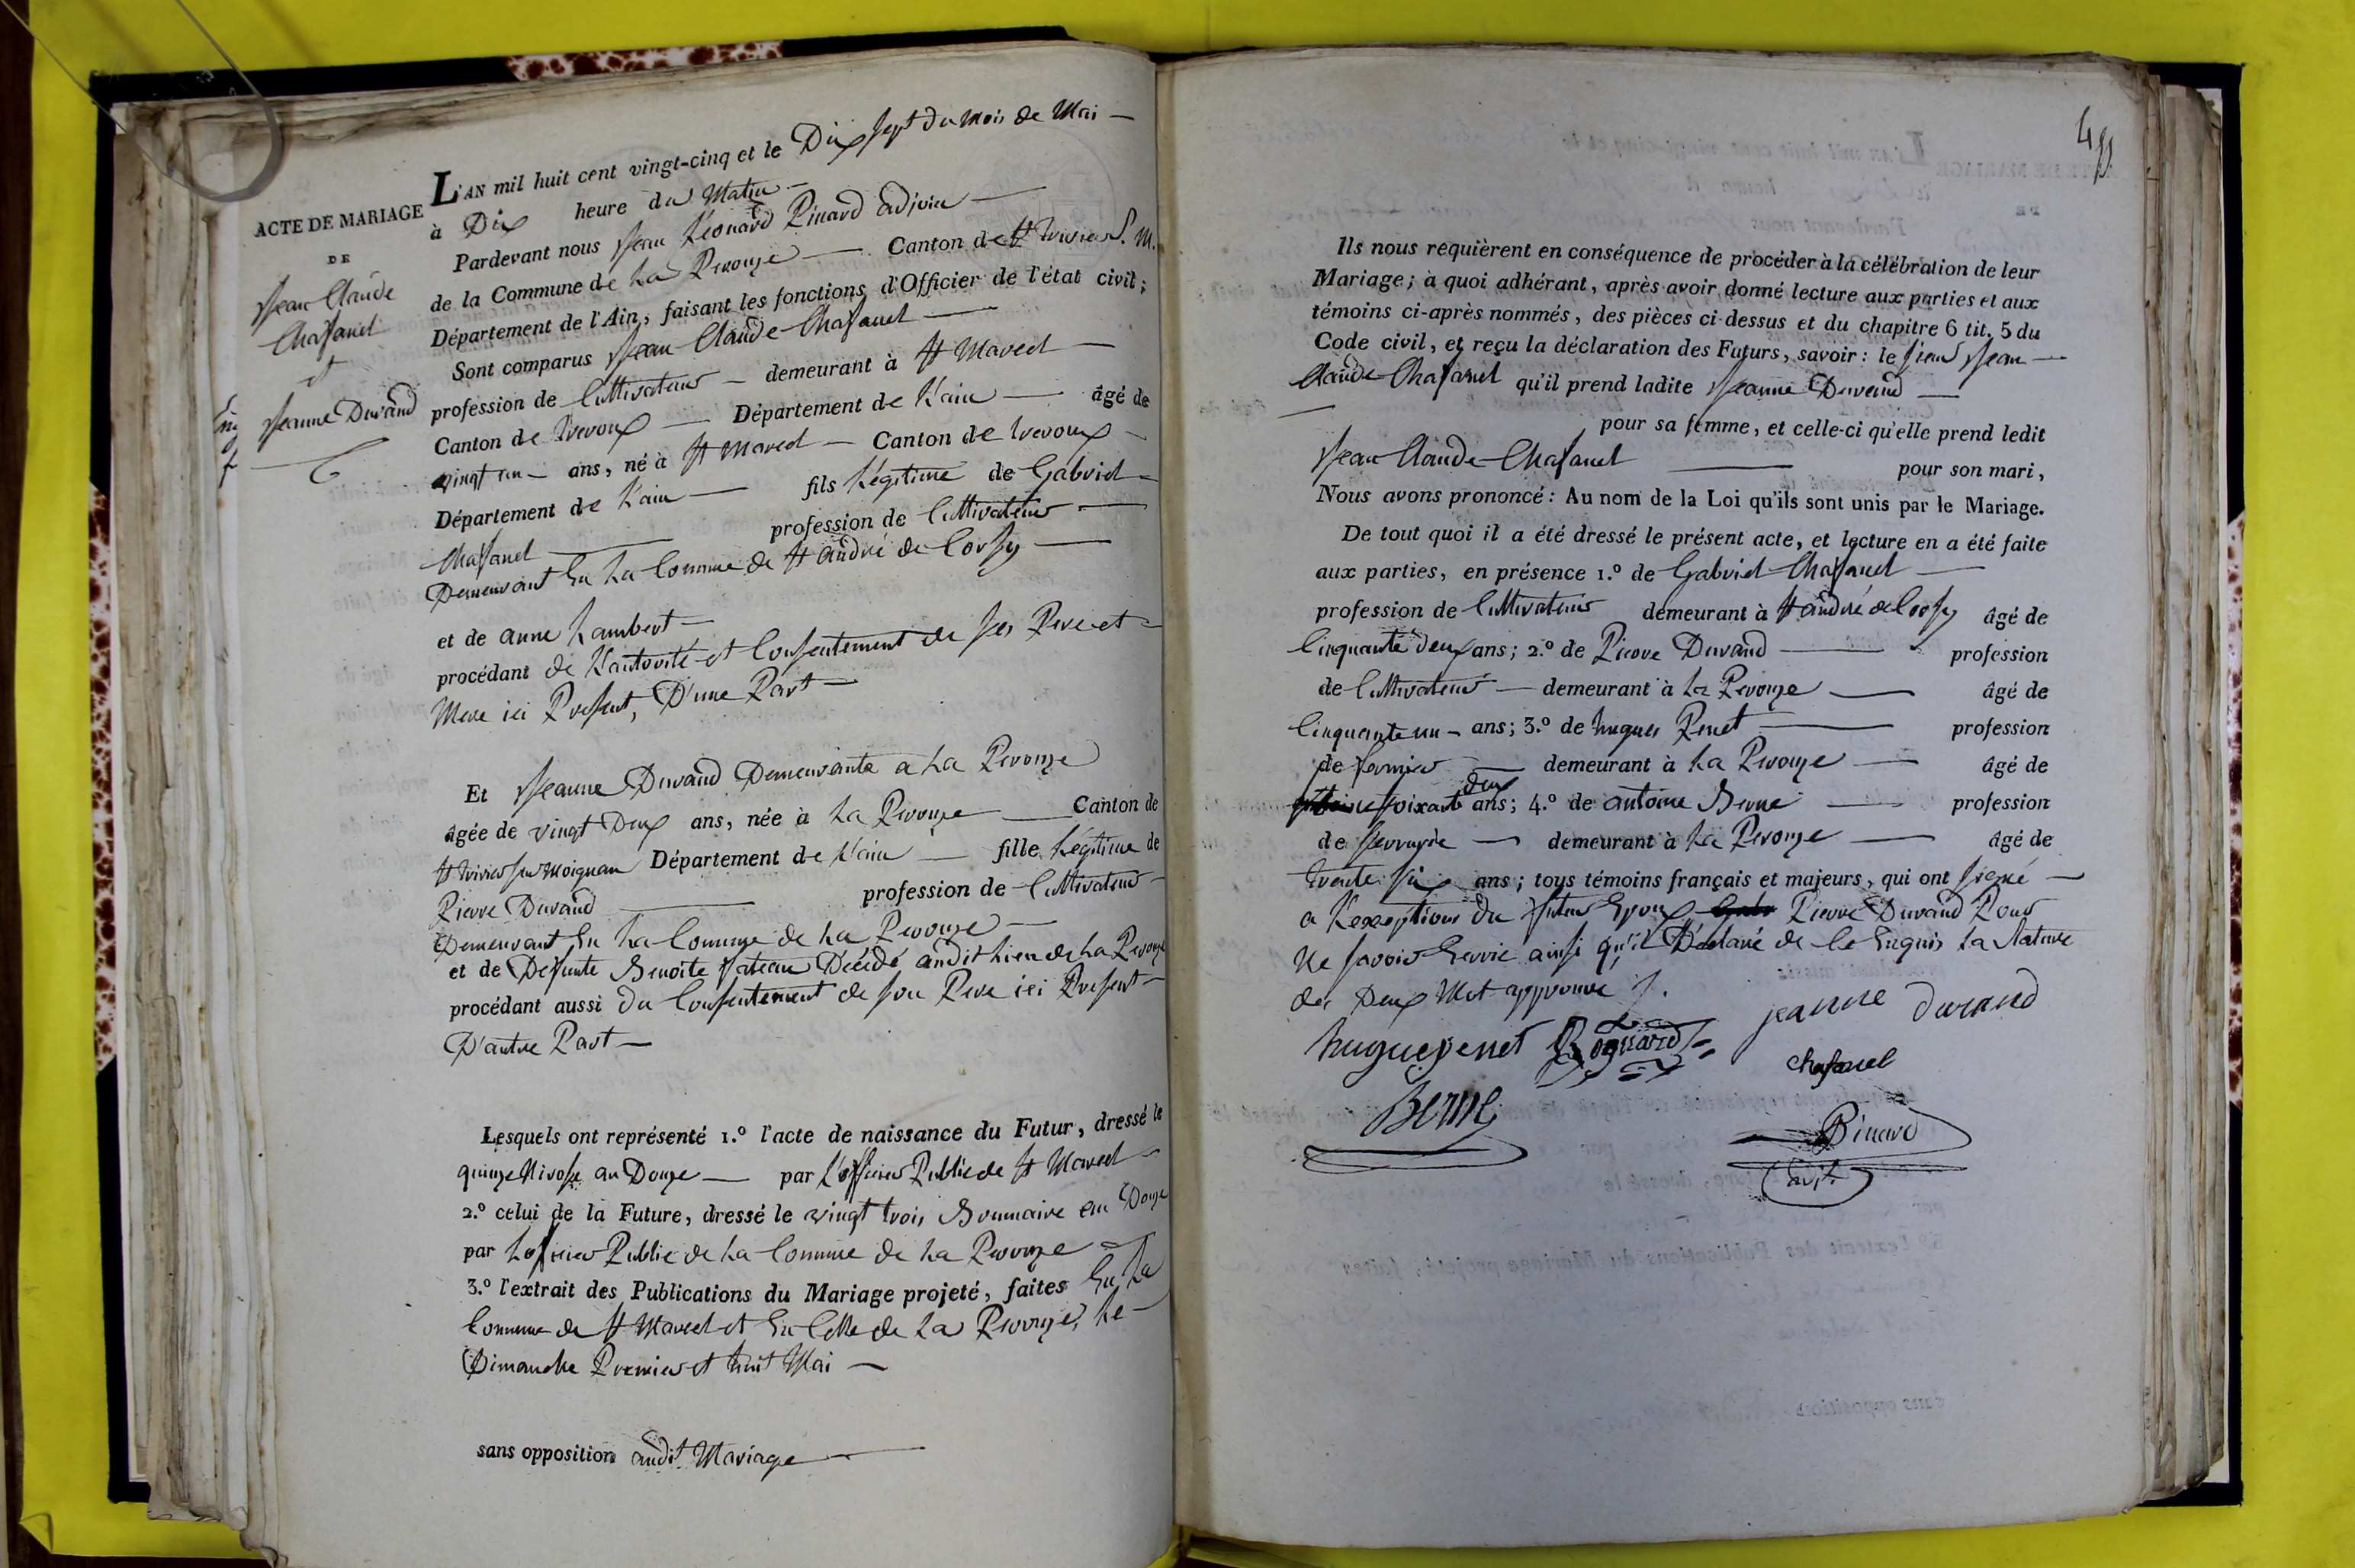 ACTE DE MARIAGE
DE
Jean Claude
Chafanel
et
Jeanne Durand
L'AN mil huit cent vingt-cinq et le Dix sept du mois de Mai
à Dix heure du Matin
Pardevant nous Jean Léonard Pinard adjoin
de la Commune de La Perouze Canton de St Trivier S. M.
Département de l'Ain, faisant les fonctions d'Officier de l'état civil;
Sont comparus Jean Claude Chafanel
profession de Cultivateur demeurant à St Marcel
Canton de Trevoux Département de L'ain âgé de
vingt un ans, né à St Marcel Canton de Trevoux
Département de L'ain fils Légitime de Gabriel
Chafanel profession de Cultivateur
Demeurant En La Commune de St andré de Corsy
et de anne Lambert
procédant de L'autorité et Consentement de ses Pere et
Mere ici Present, D'une Part
Et Jeanne Durand Demeurante a La Perouze
âgée de vingt Deux ans, née à La Perouze Canton de
St Trivier sur Moignan Département de L'ain fille Légitime de
Pierre Durand profession de Cultivateur
Demeurant En La Commune de La Perouze
et de Defunte Benoite Decédé audit Lieu de La Perouze
procédant aussi du Consentement de son Pere ici Present
D'autre Part
Lesquels ont représenté 1.º l'acte de naissance du Futur, dressé le
quinze Nivose an Douze par L'officier Public de St Marcel
2.º celui de la Future, dressé le vingt trois Brumaire an Douze
par Lofficier Public de La Commune de La Perouze
3.º l'extrait des Publications du Mariage projeté, faites En La
Commune de St Marcel et En Celle de La Perouze, Le
Dimanche Premier et huit Mai
sans opposition audit Mariage
Ils nous requièrent en conséquence de procéder à la célébration de leur
Mariage; à quoi adhérant, après avoir donné lecture aux parties et aux
témoins ci-après nommés, des pièces ci-dessus et du chapitre 6 tit. 5 du
Code civil, et reçu la déclaration des Futurs, savoir: le sieur Jean
Claude Chafanel qu'il prend ladite Jeanne Durand
pour sa femme, et celle-ci qu'elle prend ledit
Jean Claude Chafanel pour son mari,
Nous avons prononcé: Au nom de la Loi qu'ils sont unis par le Mariage.
De tout quoi il a été dressé le présent acte, et lecture en a été faite
aux parties, en présence 1.º de Gabriel Chafanel
profession de Cultivateur demeurant à St andré de Corsy âgé de
Cinquante deux ans; 2.º de Pierre Durand profession
de Cultivateur demeurant à La Perouze âgé de
Cinquante un ans; 3.º de hugues Penet profession
de fermier demeurant à La Perouze âgé de
soixante deux ans; 4.º de antoine Berne profession
de demeurant à La Perouze âgé de
trente six ans; tous témoins français et majeurs, qui ont signé
a L'exseption du futur Epoux Pierre Durand Pour
Ne savoir Ecrire ainsi qu'il Déclaré de Ce Enquis La Rature
des Deux Mot approuvé
jeanne durand
hugue penet
chafanel
Berne
Pinard
adjt.